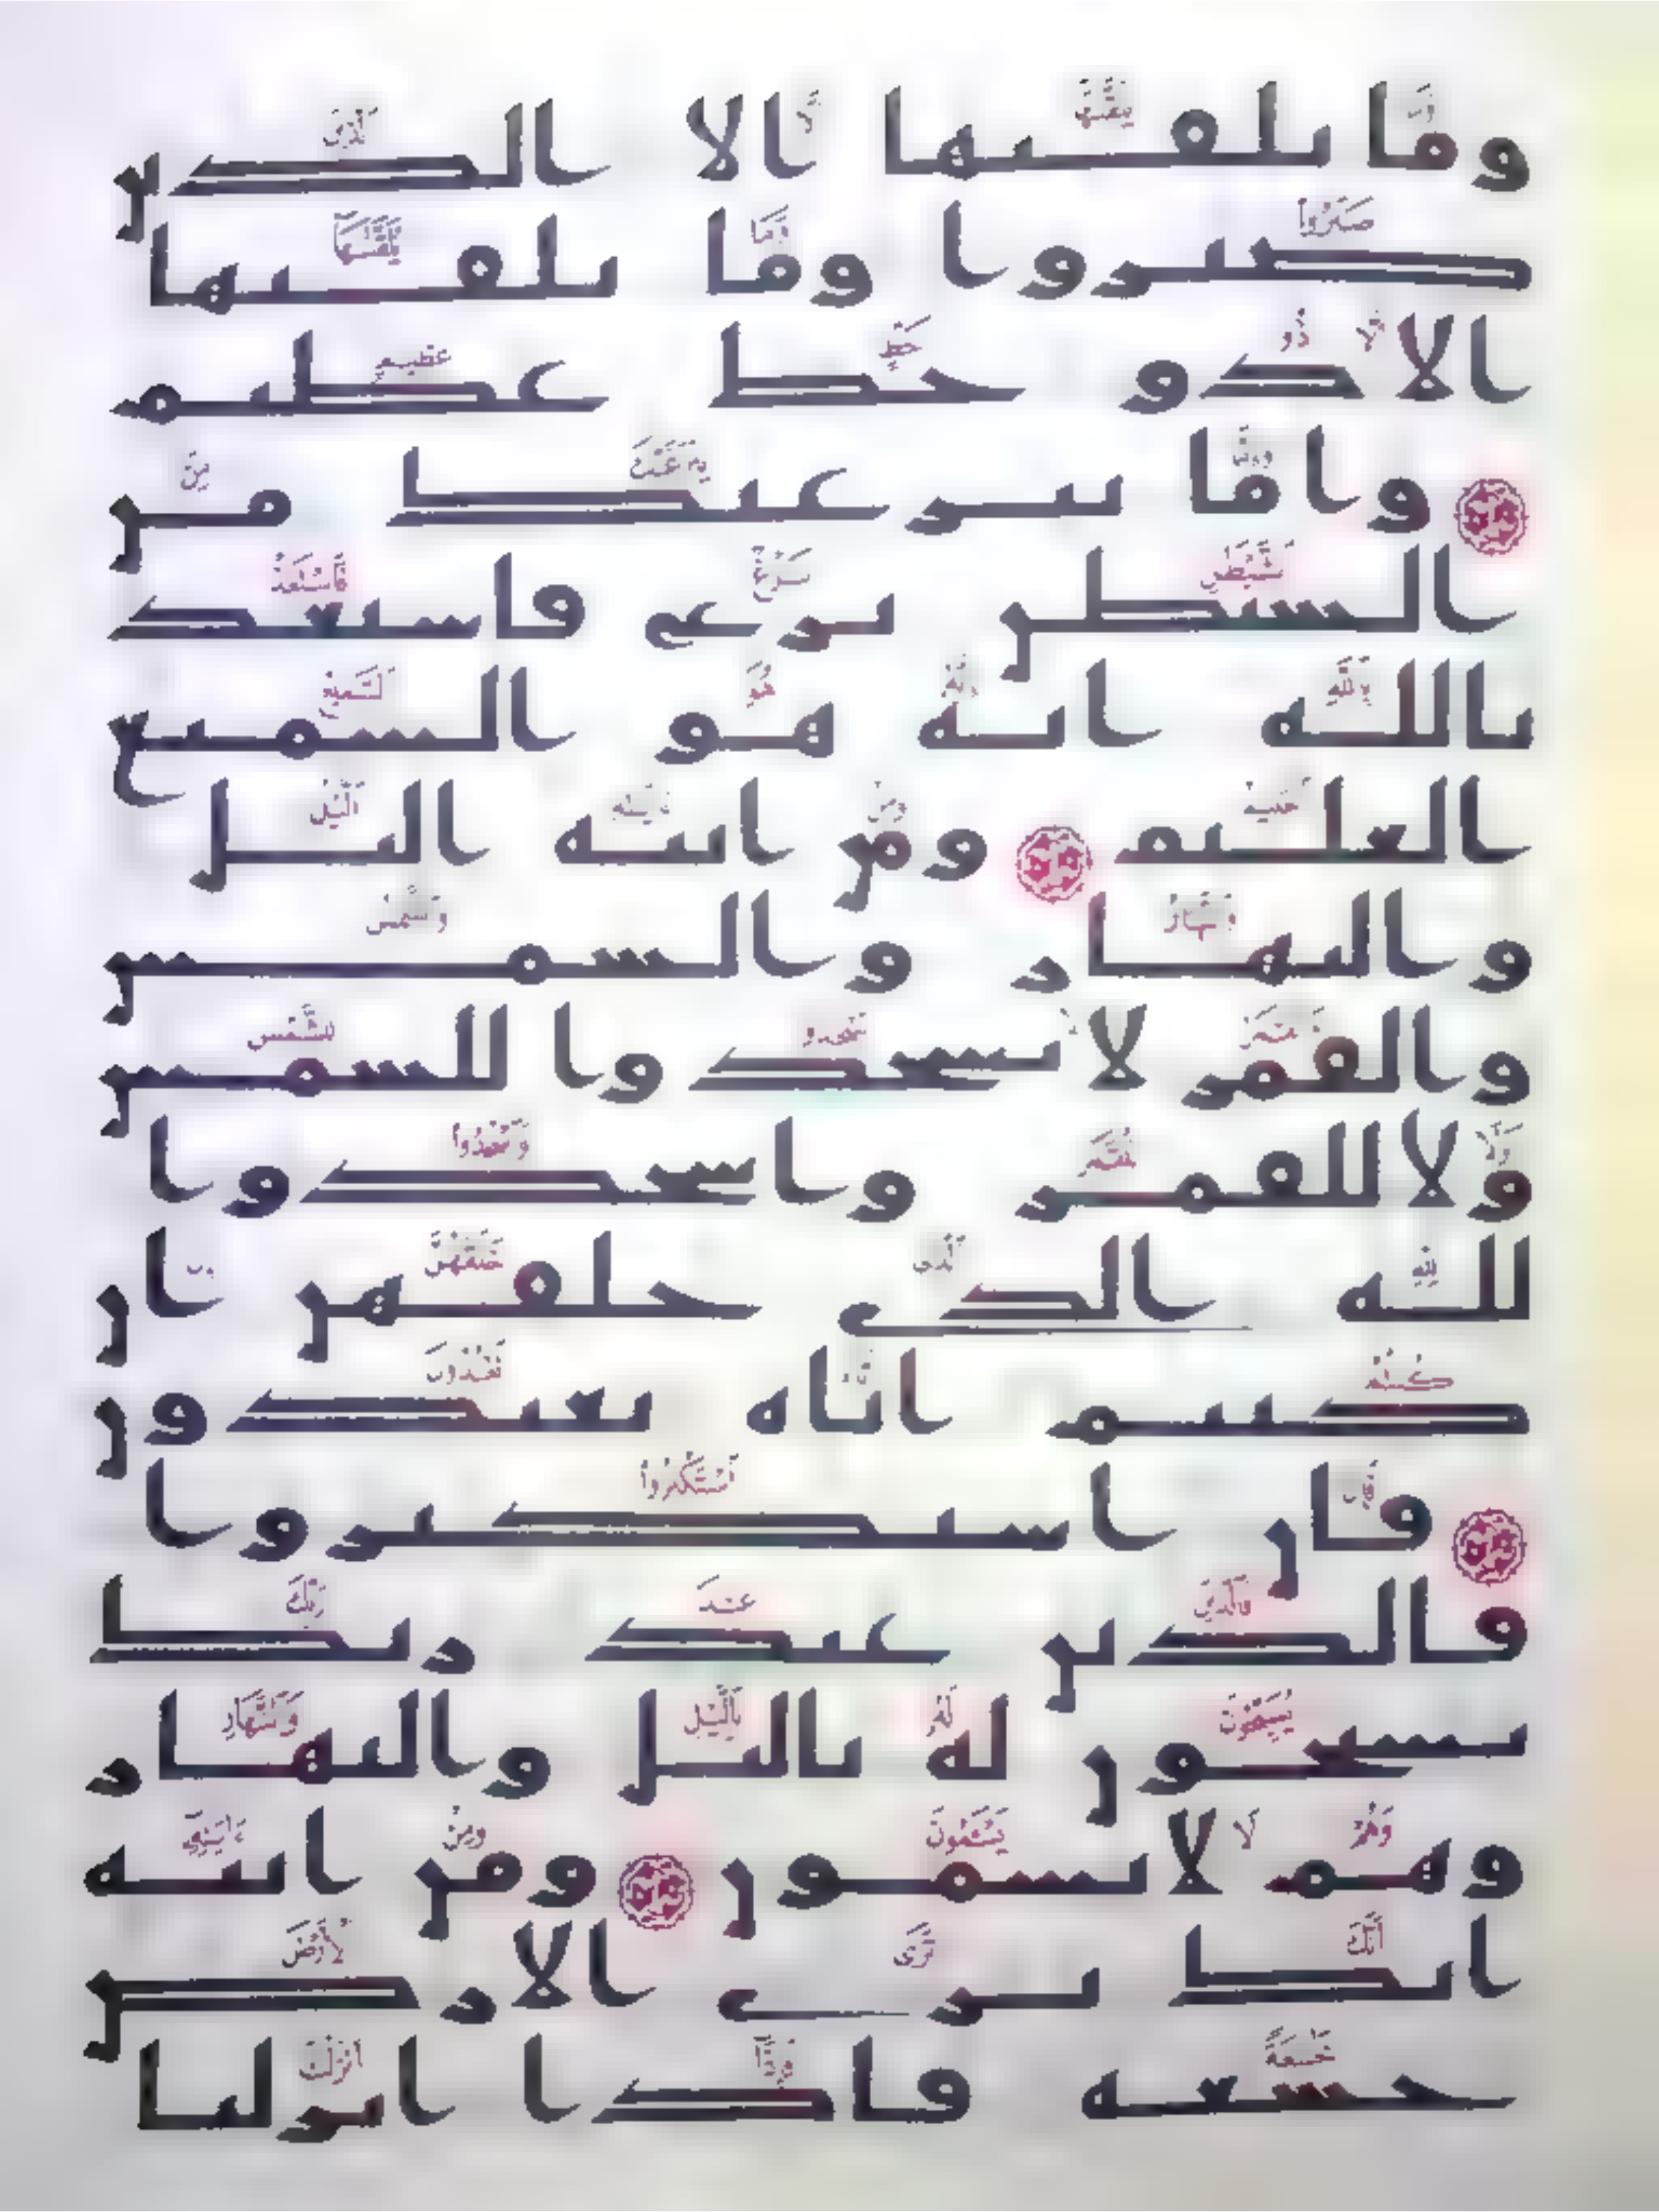 وما يلقىها الا الذين
صبروا وما يلقىها
الا ذو حظ عظيم
واما ينزغنك من
الشيطن نزغ فاستعذ
بالله انه هو السميع
العليم ومن ايته اليل
والنهار والشمس
والقمر لا تسجدوا للشمس
ولا للقمر واسجدوا
لله الذى خلقهن ان
كنتم اياه تعبدون
فان استكبروا
فالذين عند ربك
يسبحون له باليل والنهار
وهم لا يسمون ومن ايته
انك ترى الارض
خشعة فاذا انزلنا